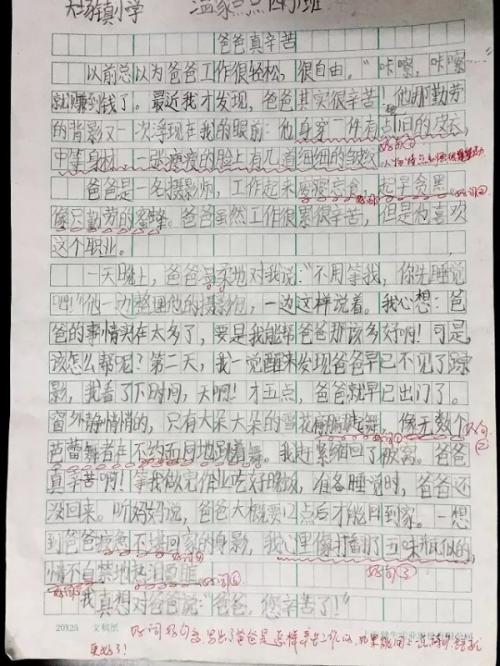 大场镇小学 温家 四 班
爸爸真辛苦
以前总以为爸爸工作很轻松，很自由。"咔嚓，咔嚓"
就赚到钱了。最近我才发现，爸爸其实很辛苦！他那勤劳
的背影又一次浮现在我的眼前：他身穿一件有点旧的皮衣，
中等身材，一张瘦瘦的脸上有几道细细的皱纹。
好句①
爸爸是一名摄影师，工作起来废寝忘食、起早贪黑，
好词
像只勤劳的蜜蜂。爸爸虽然工作很累很辛苦，但是他喜欢
这个职业。
一天晚上，爸爸温柔地对我说："不用等我，你先睡觉
吧！"他一边整理他的摄影包，一边这样说着。我心想：爸
爸的事情实在太多了，要是我能帮爸爸那该多好啊！可是，
该怎么帮呢？第二天，我一觉醒来发现爸爸早已不见了踪
影，我看了下时间，天啊！才五点，爸爸就早已出门了。
窗外静悄悄的，只有大朵大朵的雪花翩翩起舞，像无数个
好句
②
芭蕾舞者在不约而同地跳着舞。我赶紧缩回了被窝。爸爸
真辛苦啊！等我做完作业吃好晚饭，准备睡觉时，爸爸还
没回来。听妈妈说，爸爸大概要12点后才能回到家。一想
到爸爸疲惫不堪回家的身影，我心里像打翻了五味瓶似的，
好句③
情不自禁地热泪盈眶。
好词
我真想对爸爸说："爸爸，您辛苦了！"
20125 文稿纸
好词好句多，写出了爸爸是怎样辛苦工作的，
更好了！